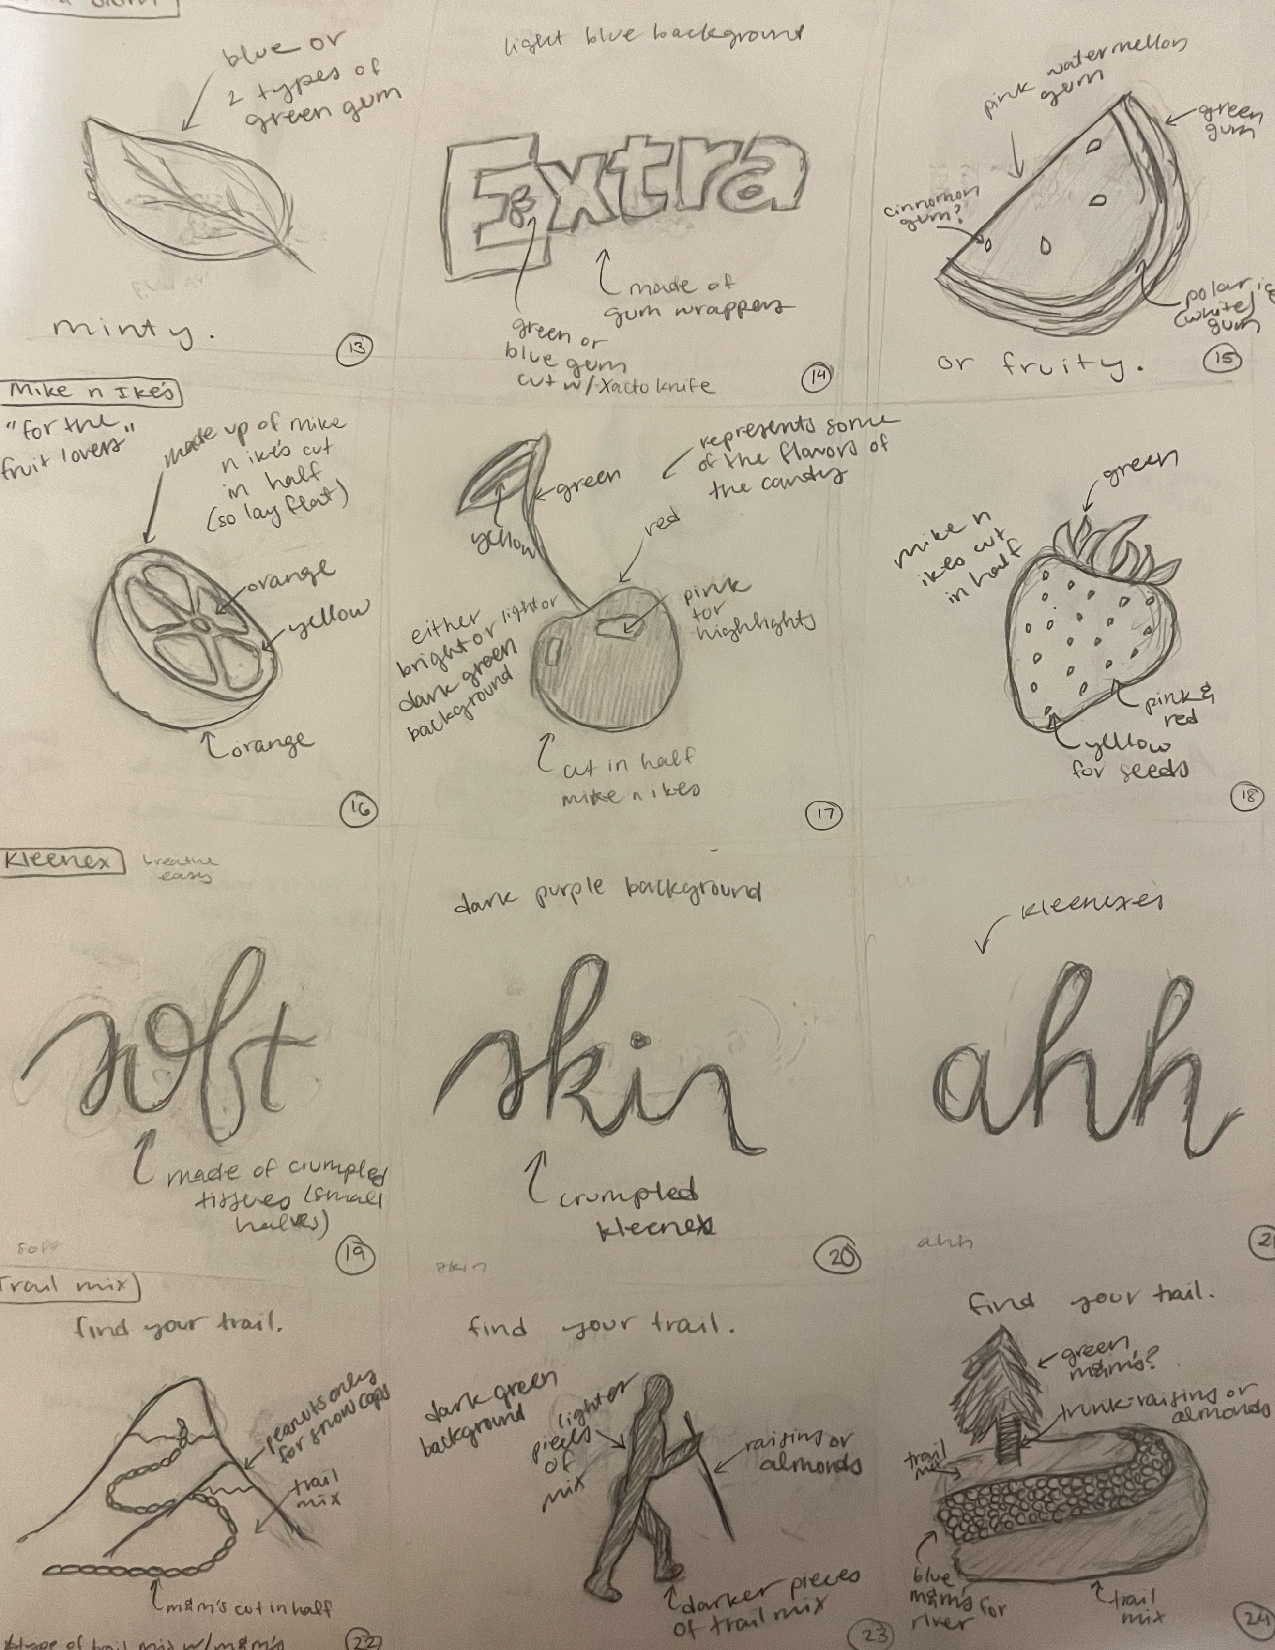 blue or
2 types of
green gum
minty.
13
light blue background
Extra
made of
gum wrappers
green or
blue gum
cut w/ Xacto knife
14
pink watermellon
gum
green
gum
cinnomon
gum?
polar ice
(white)
gum
or fruity.
15
Mike n Ike's
"for the
fruit lovers"
made up of mike
n ike's cut
in half
(so lay flat)
orange
yellow
orange
16
green
yellow
represents some
of the flavors of
the candy
red
pink
for
highlights
either
bright or light or
dark green
background
cut in half
mike n ikes
17
green
mike n
ikes cut
in half
pink &
red
yellow
for seeds
18
Kleenex
creative
easy
soft
made of crumpled
tissues (small
halves)
soft
19
dark purple background
skin
crumpled
kleenex
skin
20
kleenexes
ahh
ahh
21
Trail mix
find your trail.
peanuts only
for snow caps
trail
mix
m&m's cut in half
*type of trail mix w/ m&m's
22
find your trail.
dark green
background
lighter
pieces
of
mix
raisins or
almonds
darker pieces
of trail mix
23
find your trail.
green
m&m's?
trunk-raisins or
almonds
trail
mix
blue
m&m's for
river
trail
mix
24